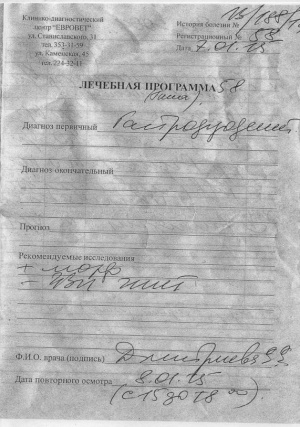 Клинико-диагностический
центр "ЕВРОВЕТ"
ул. Станиславского, 21
тел. 353-11-59
ул. Каменская, 45
тел. 224-32-11
История болезни №
Регистрационный № 58
Дата 7.01.15
ЛЕЧЕБНАЯ ПРОГРАММА 58
Диагноз первичный Гастродуоденит
Диагноз окончательный
Прогноз
Рекомендуемые исследования
+ морф
УЗИ ЖКТ
Ф.И.О. врача (подпись) Дмитриева
Дата повторного осмотра 8.01.15
(с 15 до 18 00)